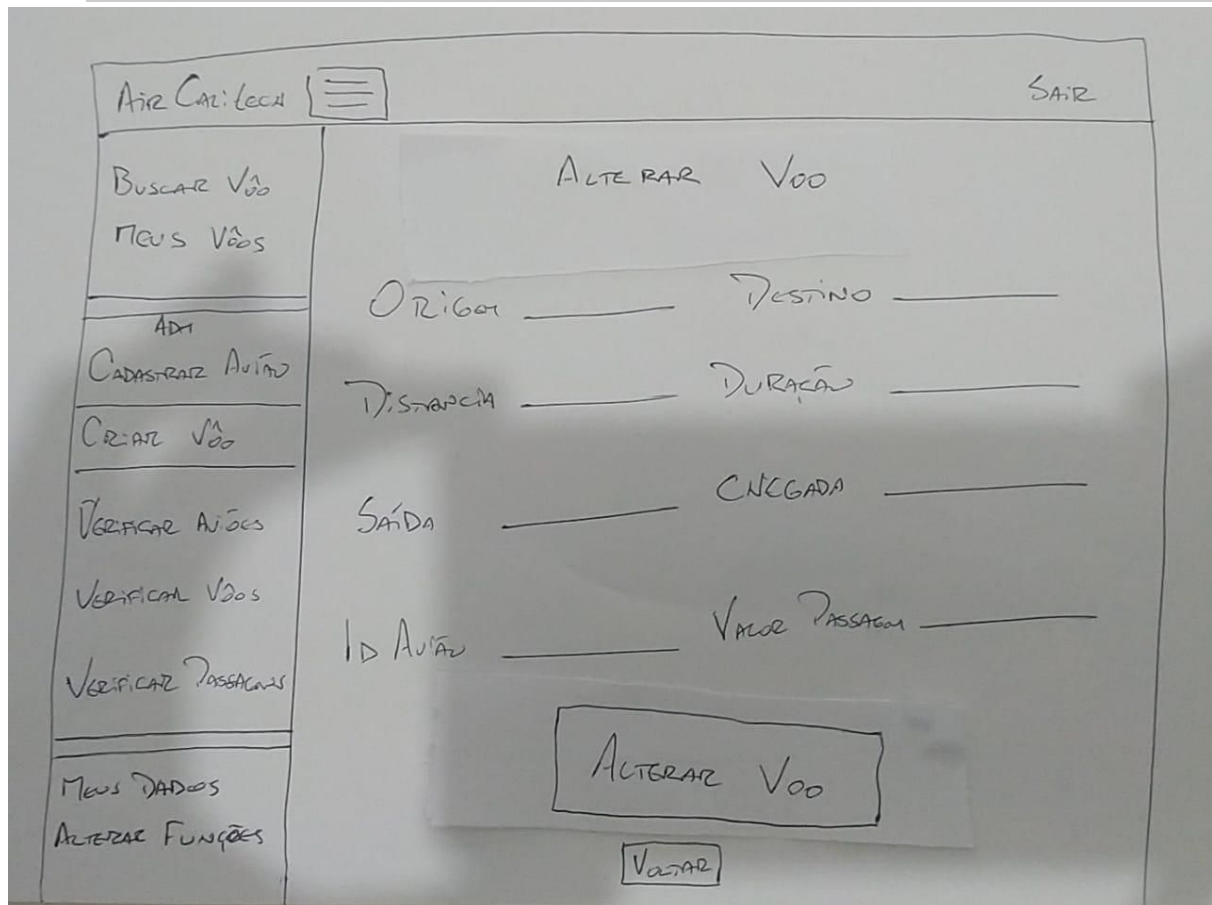 Air
SAIR
BUSCAR VÔO
MEUS VÔOS
ADM
CADASTRAR AVIÃO
CRIAR VÔO
VERIFICAR AVIÕES
VERIFICAR VÔOS
VERIFICAR PASSAGENS
MEUS DADOS
ALTERAR FUNÇÕES
ALTERAR VOO
ORIGEM DESTINO
DISTANCIA DURAÇÃO
SAÍDA CHEGADA
ID AVIÃO VALOR PASSAGEM
ALTERAR VOO
VOLTAR